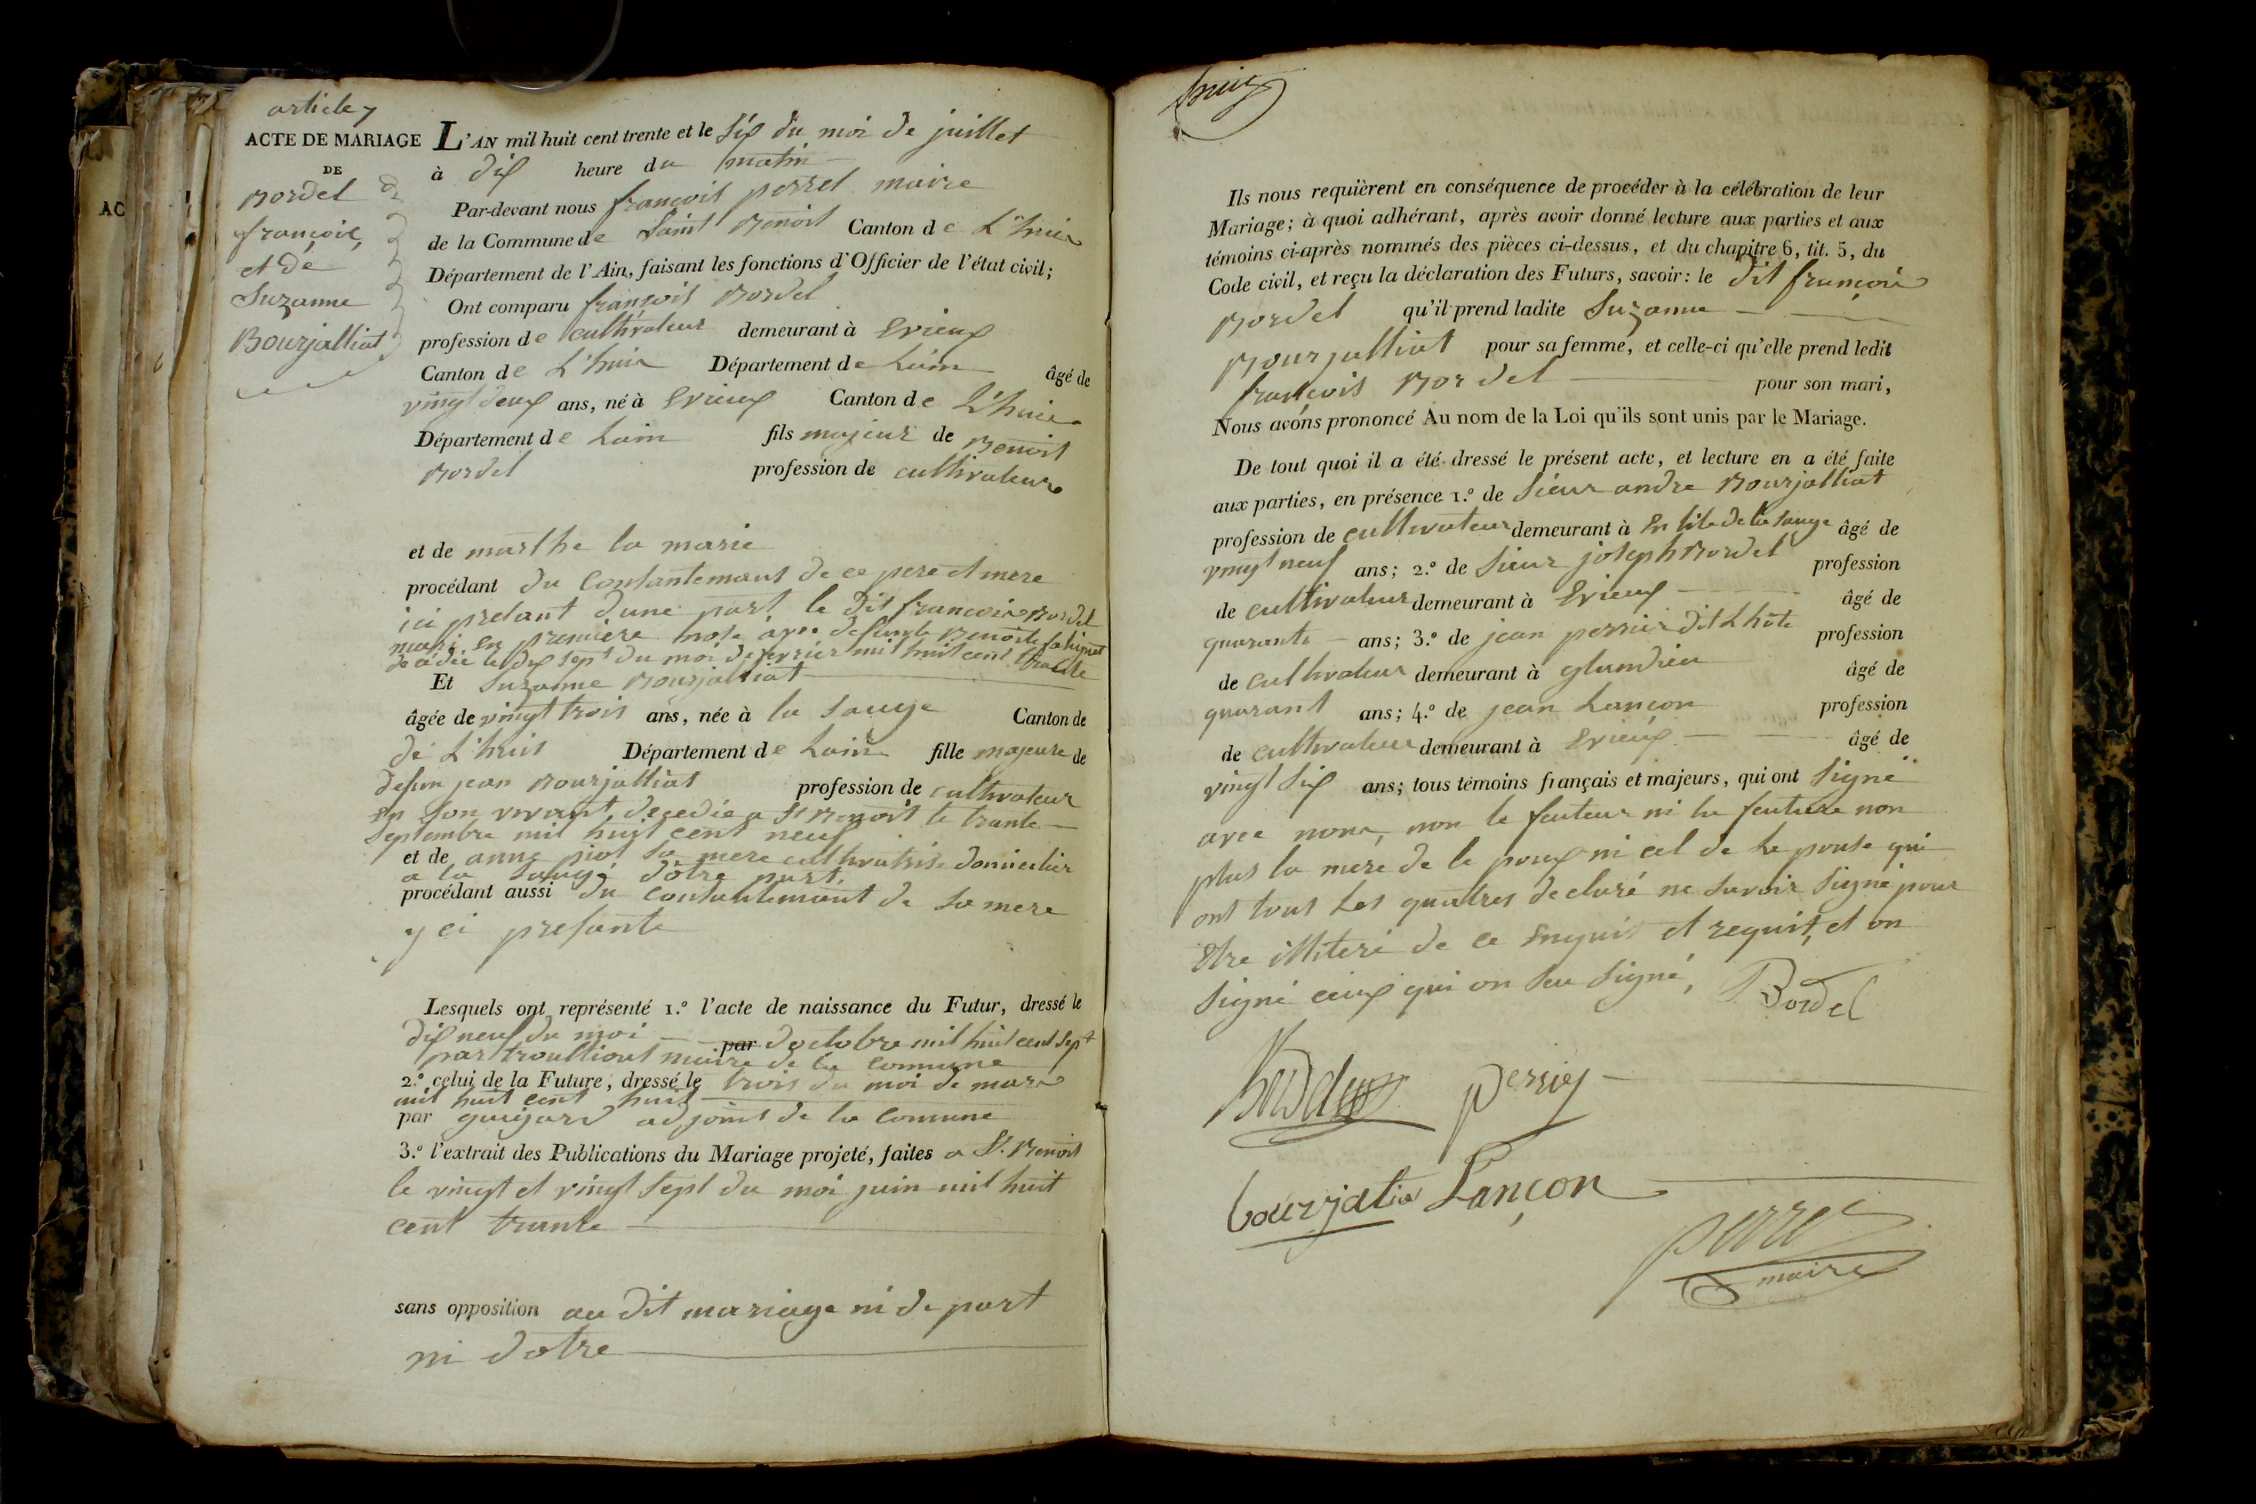 article 7
ACTE DE MARIAGE
DE
Bordel
françois
et de
Suzanne
Bourjalliat
L'AN mil huit cent trente et le six du moi de juillet
à dix heure du matin
Par-devant nous françois perret maire
de la Commune de Saint Benoit Canton de L'huis
Département de l'Ain, faisant les fonctions d'Officier de l'état civil;
Ont comparu françois Bordel
profession de cultivateur demeurant à Evieux
Canton de L'huis Département de Lain âgé de
vingt deux ans, né à Evieux Canton de L'huis
Département de Lain fils majeur de Benoit
Bordel profession de cultivateur
et de marthe la marie
procédant du Consantemant de ce pere et mere
ici presant d'une part le dit francois Bordel
mari en premiere nose avec defunte Benoite
decedée le dix sept du moi de fevrier mil huit cent trante
Et Suzanne Bourjalliat
âgée de vingt trois ans, née à la Sauge Canton de
de L'huis Département de Lain fille majeure de
defun jean Bourjalliat profession de cultivateur
en son vivant decedée a St Benoit le trante
septembre mil huit cent neuf
et de anne piot sa mere cultivatrise domicilier
a la Sauge dotre part,
procédant aussi du consantemant de sa mere
y ci presante
Lesquels ont représenté 1.º l'acte de naissance du Futur, dressé le
dix neuf du moi par doctobre mil huit cent sept
par troulliout maire de la comune
2.º celui de la Future, dressé le trois du moi de mars
mil huit cent huit
par guigard adjoint de la Comune
3.º l'extrait des Publications du Mariage projeté, faites a St. Benoit
le vingt et vingt sept du moi juin mil huit
cent trante
sans opposition au dit mariage ni de part
ni dotre
huit
Ils nous requièrent en conséquence de procéder à la célébration de leur
Mariage; à quoi adhérant, après avoir donné lecture aux parties et aux
témoins ci-après nommés des pièces ci-dessus, et du chapitre 6, tit. 5, du
Code civil, et reçu la déclaration des Futurs, savoir: le dit françois
Bordel qu'il prend ladite Suzanne
Bourjalliat pour sa femme, et celle-ci qu'elle prend ledit
françois Bordel pour son mari,
Nous avons prononcé Au nom de la Loi qu'ils sont unis par le Mariage.
De tout quoi il a été dressé le présent acte, et lecture en a été faite
aux parties, en présence 1.º de Sieur andre Bourjalliat
profession de cultivateur demeurant à En lile de la Sauge âgé de
vingt neuf ans; 2.º de Sieur joseph Bordel profession
de cultivateur demeurant à Evieux âgé de
quarante ans; 3.º de jean perrier dit Lhôte profession
de cultivateur demeurant à glandieu âgé de
quarant ans; 4.º de jean Lançon profession
de cultivateur demeurant à Evieux âgé de
vingt six ans; tous témoins français et majeurs, qui ont signé
avec nous, non le feuteur ni la feuture non
plus la mere de le poux ni cel de le pouse qui
ont tous les quatres declaré ne savoir signé pour
Etre illiteré de ce Enquis et requit, et on
signé ceux qui on seu signé, Bordel
Bordel perrier
bourjalia Lançon
perret
maire